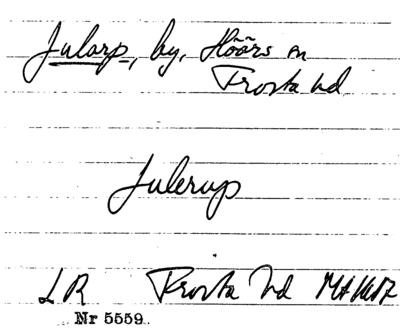 Jularp, by, Höörs sn
Frosta hd
Julerup
LR Frosta hd
Nr 5559